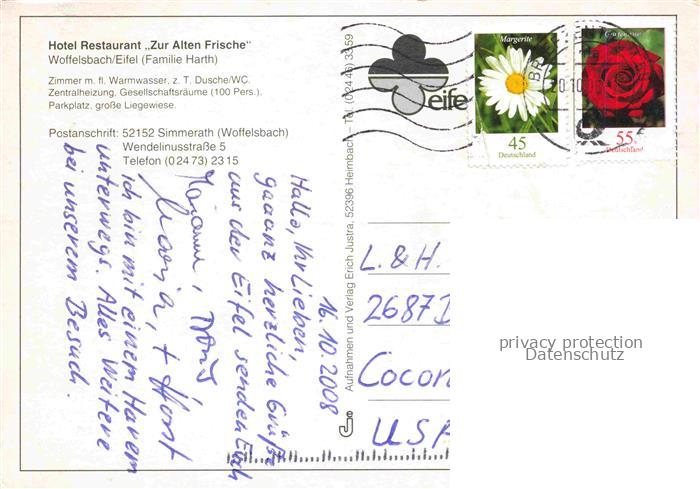 Hotel Restaurant „Zur Alten Frische"
Woffelsbach/Eifel (Familie Harth)
Zimmer m. fl. Warmwasser, z. T. Dusche/WC.
Zentralheizung, Gesellschaftsräume (100 Pers.).
Parkplatz, große Liegewiese.
Postanschrift: 52152 Simmerath (Woffelsbach)
Wendelinusstraße 5
Telefon (0 24 73) 23 15
16.10.2008
Hallo, Ihr Lieben,
gaaanz herzliche Grüße
aus der Eifel senden Euch
Marianne, Doris,
Maria, + Horst
ich bin mit einem Harem
unterwegs. Alles Weitere
bei unserem Besuch.
Aufnahmen und Verlag Erich Justra, 52396 Heimbach - Tel. (0 24 46) 33 59
eifel
Margerite
45
Deutschland
Gartenrose
55
Deutschland
BRIEF
20.10.
L. & H.
2687
Cocon
USA
privacy protection
Datenschutz